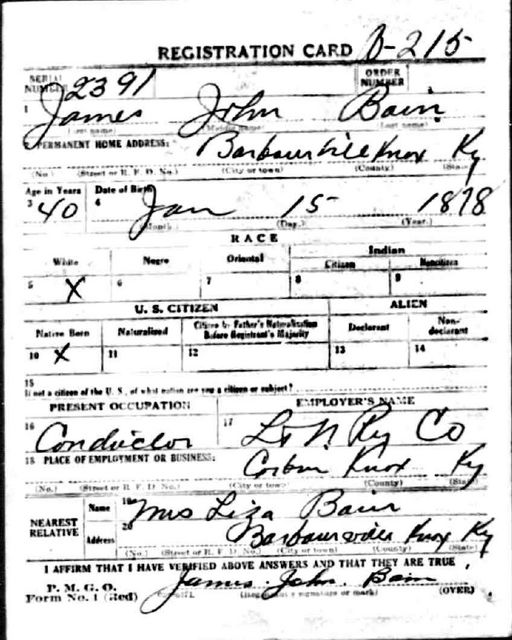 REGISTRATION CARD D-215
SERIAL NUMBER 2391 ORDER NUMBER
1 James John Bain
(First name) (Middle name) (Last name)
2 PERMANENT HOME ADDRESS: Barbourville Knox Ky
(No.) (Street or R. F. D. No.) (City or town) (County) (State)
Age in Years Date of Birth
3 40 4 Jan 15 1878
(Month) (Day) (Year)
RACE
White Negro Oriental Indian
Citizen Noncitizen
5 X 6 7 8 9
U. S. CITIZEN ALIEN
Native Born Naturalized Citizen by Father's Naturalization Before Registrant's Majority Declarant Non-declarant
10 X 11 12 13 14
15
If not a citizen of the U. S., of what nation are you a citizen or subject?
PRESENT OCCUPATION EMPLOYER'S NAME
16 Conductor 17 L & N Ry Co
18 PLACE OF EMPLOYMENT OR BUSINESS: Corbin Knox Ky
(No.) (Street or R. F. D. No.) (City or town) (County) (State)
NEAREST RELATIVE Name 19 Mrs Liza Bain
Address 20 Barbourville Knox Ky
(No.) (Street or R. F. D. No.) (City or town) (County) (State)
I AFFIRM THAT I HAVE VERIFIED ABOVE ANSWERS AND THAT THEY ARE TRUE
P. M. G. O.
Form No. 1 (Red) James John Bain
(Registrant's signature or mark) (OVER)